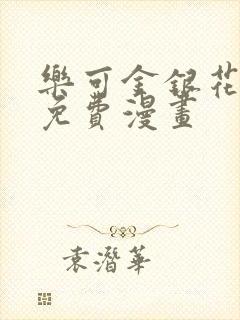 樂可金銀花
免費漫畫
袁潛華